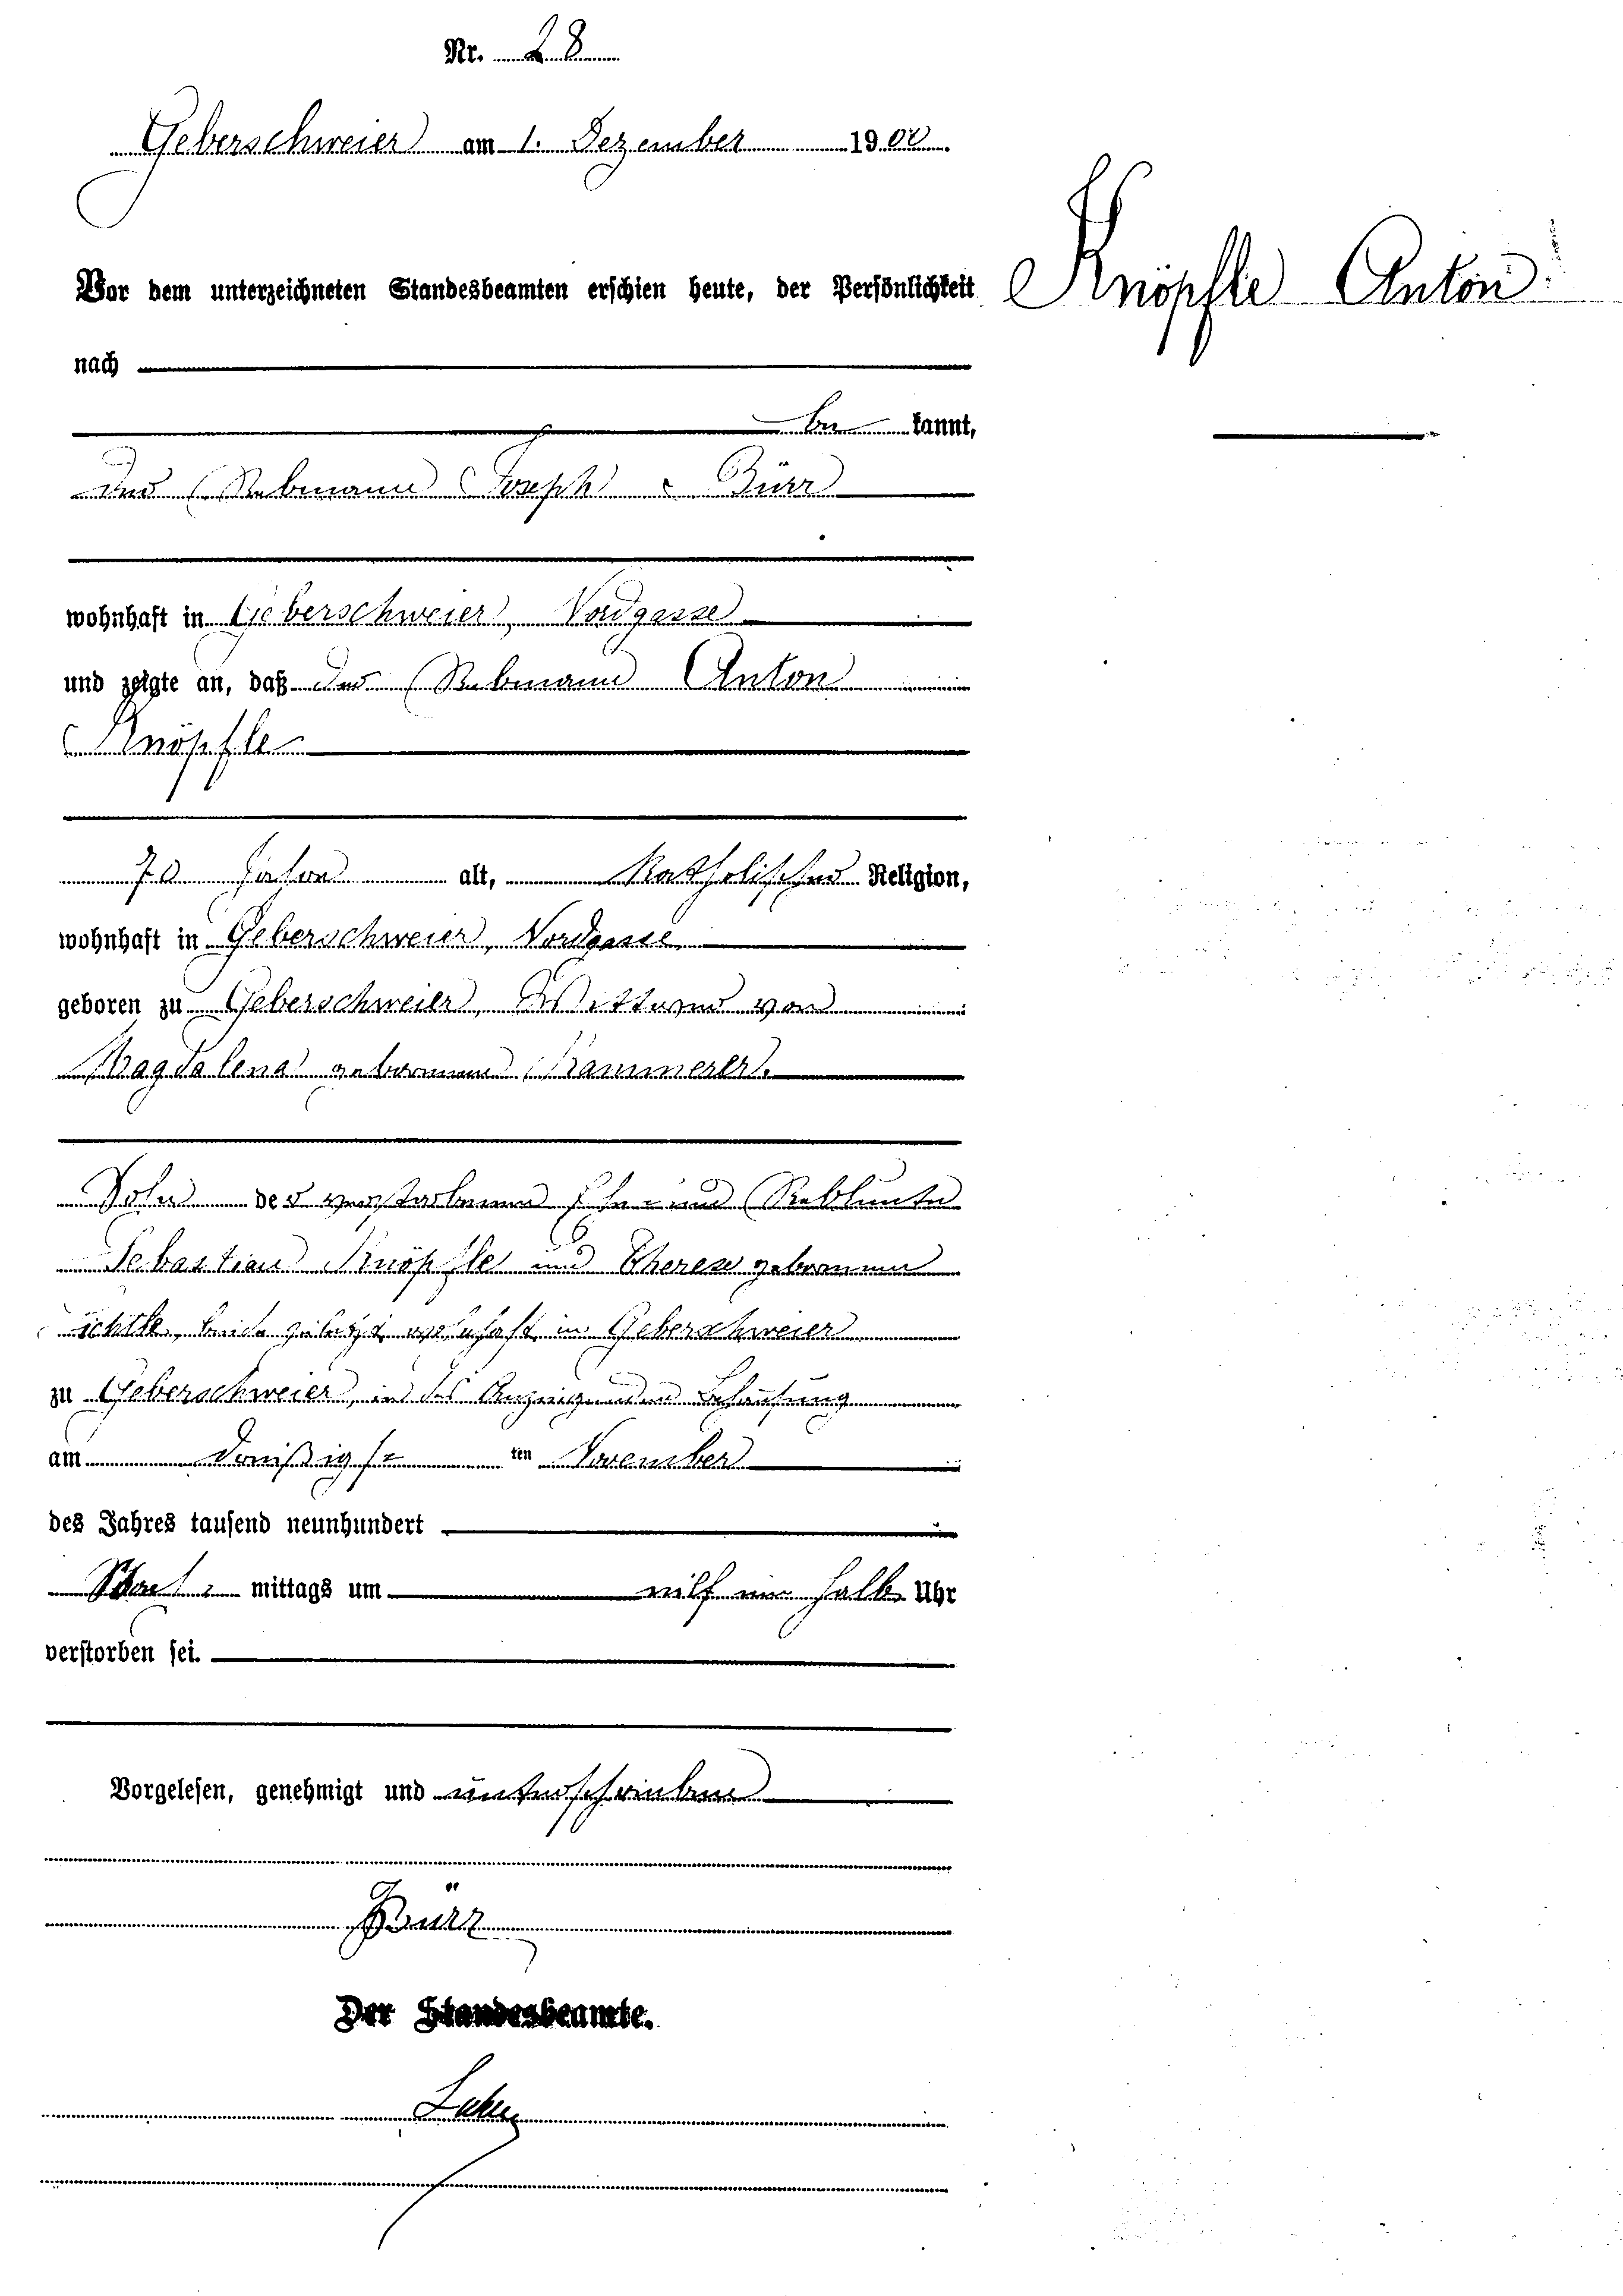 Nr. 28
Geberschweier am 1. Dezember 1900.
Vor dem unterzeichneten Standesbeamten erschien heute, der Persönlichkeit
Knöpfle Anton
nach
be kannt,
der Rebmann Joseph Bürr
wohnhaft in Geberschweier, Nordgasse
und zeigte an, daß der Rebmann Anton
Knöpfle
70 Jahre alt, Katholischer Religion,
wohnhaft in Geberschweier, Nordgasse
geboren zu Geberschweier, Wittwer von
Magdalena geborenen Kammerer.
Sohn der verstorbenen Ehe- und Rebleute
Sebastian Knöpfle und Therese geborenen
ichtle, beide zuletzt wohnhaft in Geberschweier
zu Geberschweier, in des Anzeigenden Behausung
am dreißigs ten November
des Jahres tausend neunhundert
mittags um elf ein halb Uhr
verstorben sei.
Vorgelesen, genehmigt und unterschrieben
Bürr
Der Standesbeamte.